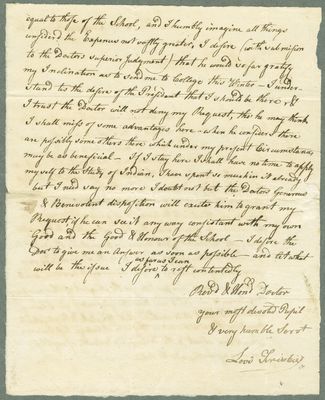 equal to those of the School, and I humbly imagine all things
considered the Expences not vastly greater, I desire (with submission
to the Doctors superior Judgment) that he would so far gratify
my Inclination as to send me to College this Winter – I under-
stand tis the desire of the President that I should be there, &
I trust the Doctor will not deny my Request, tho he may think
I shall miss of some advantages here – when he considers there
are possibly some others there which under my present Circumstances
may be as beneficial – If I stay here I shall have no time to apply
myself to the Study of Indian, I have spent so much in it already
but I need say no more I doubt not but the Doctors Generous
& Benevolent disposition will excite him to grant my
Request if he can see it any way consistant with my own
Good and the Good & Honour of the School – I desire the
Doctr to give me an Answer as soon as possible – and let what
will be the issue I desire as far as I can to rest contentedly
Revd & Hond Doctor
your most devoted Pupil
& very humble Servt
Levi Frisbie